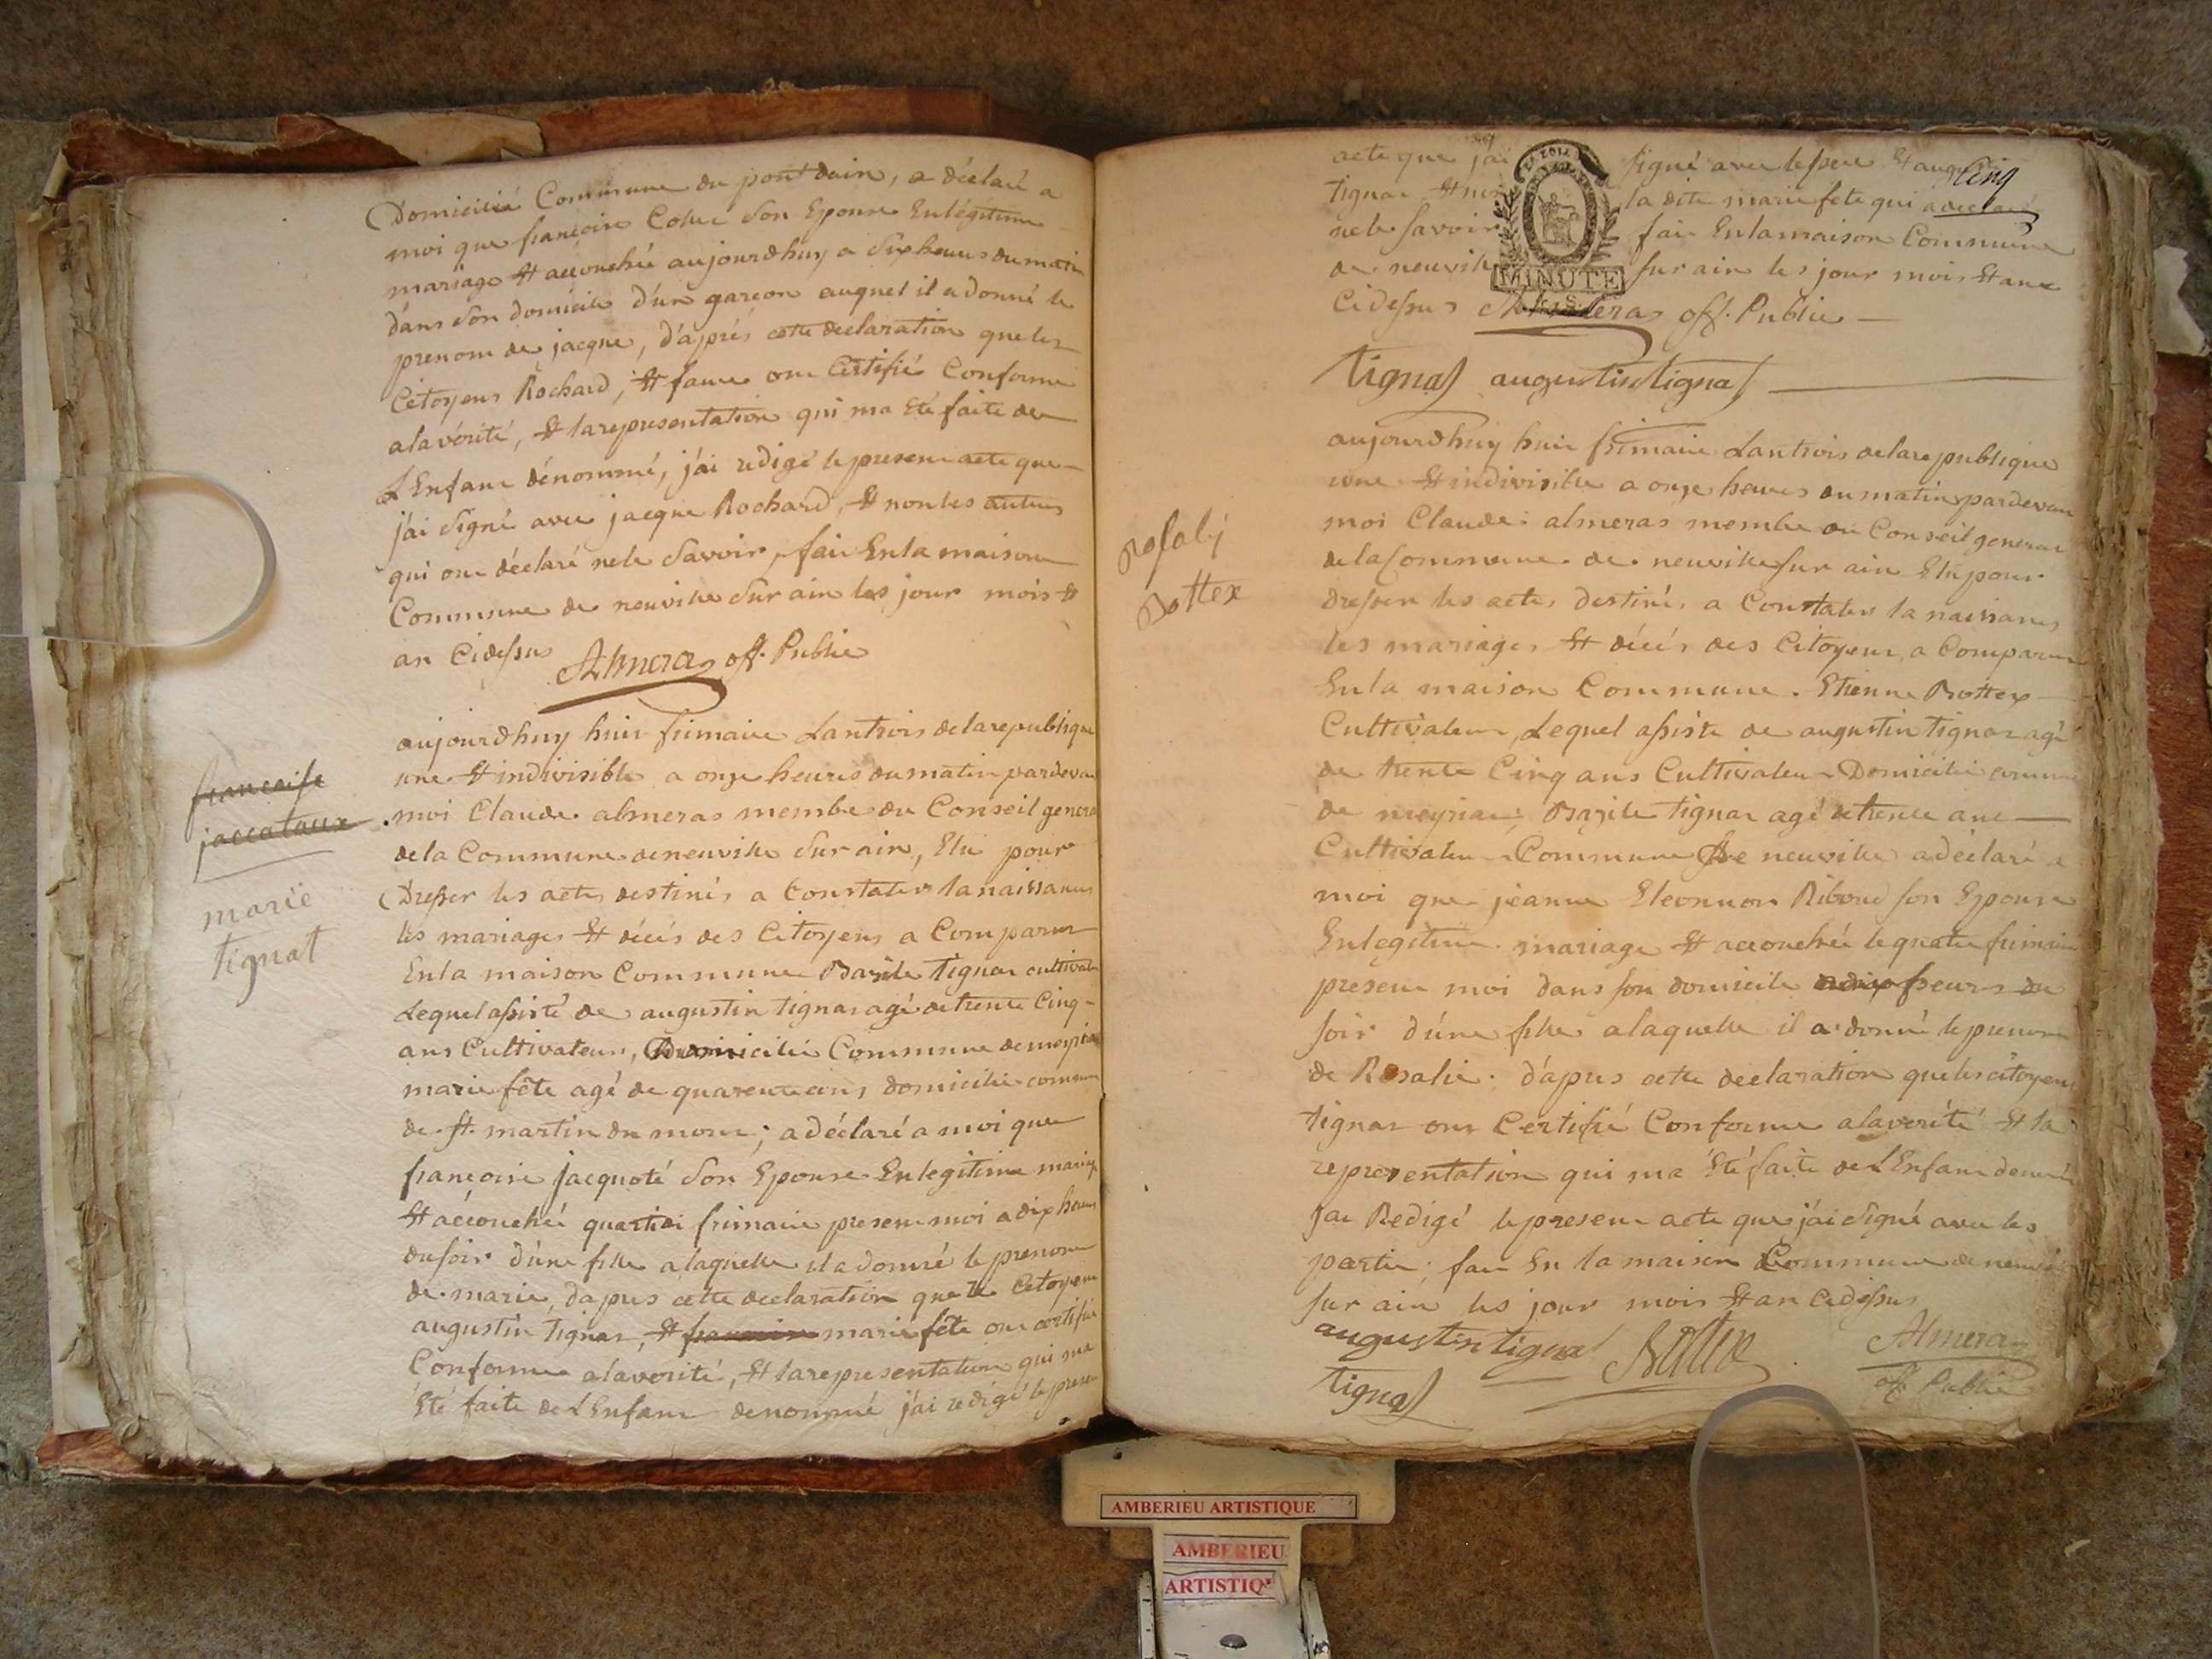 Domicilié Commune du pont dain, a déclaré a
moi que françoise Collet son Epouse Enlégitime
mariage Et accouchée aujourdhuy a six heures du matin
dans son domicile d'un garcon auquel il a donné le
prenom de jacque, d'aprés cette declaration que les
Citoyens Rochard, Et faure ont Certifié Conforme
alavérité, Et la representation qui ma Eté faite de
L'Enfant dénommé, j'ai redigé le present acte que
j'ai Signé avec jacque Rochard, Et non les autres
qui ont déclaré ne le Savoir, fait Enla maison
Commune de neuville Sur ain les jour mois Et
an Cidessus Almeras off. Public
francoise
jaccataux
marie
tignat
aujourdhuy huit frimaire Lantrois delarepublique
une Et indivisible a onze heures du matin pardevant
moi Claude almeras membre du Conseil general
de la Commune deneuville Sur ain, Elu pour
Dresser les actes destinés a Constater la naissances
les mariages Et décés des Citoyens a Comparut
Enla maison Commune Bazile tignat cultivateur
Lequel assisté de augustin tignat agé de trente Cinq
ans Cultivateur, Domicilié Commune de meyriat
marie fête agé de quarente ans domicilie commune
de St. martin du mont; a déclaré a moi que
françoise jacquoté Son Epouse Enlegitime mariage
Et accouchée quartidi frimaire present moi a dix heures
du soir d'une fille alaquelle il a donné le prenom
de marie, dapres cette declaration que le Citoyens
augustin tignat, Et marie fête ont certifié
Conforme alaverité, Et larepresentation qui ma
Eté faite de L'Enfant denommé j'ai redigé le present
acte que j'ai signé avec le pere Et augustin
Cinq
tignat Et non la dite marie fete qui a declaré
ne le savoir fait Enlamaison Commune
de neuville sur ain les jour mois Et ans
LA LOI
MINUTE
Cidessus Almeras off. Public
tignat augustin tignat
Rosaly
Bottex
aujourdhuy huit frimaire Lantrois delarepublique
une Et indivisible a onze heures du matin pardevant
moi Claude almeras membre du Conseil general
de la Commune de neuville sur ain Elu pour
dresser les actes destinés a Constater la naissances
les mariages Et décés des Citoyens a Comparut
Enla maison Commune. Etienne Bottex
Cultivateur, Lequel assisté de augustin tignat agé
de trente Cinq ans Cultivateur Domicilié commune
de meyriat, Bazile tignat agé de trente ans
Cultivateur Commune de neuville a déclaré a
moi que jeanne Eleonnor Riboud son Epouse
Enlegitime mariage Et accouchée le quatre frimaire
présent moi dans son domicile a dix heures du
soir d'une fille alaquelle il a donné le prenom
de Rosalie; d'apres cette declaration que les citoyens
tignat ont Certifié Conforme alaverité Et la
representation qui ma Eté faite de L'Enfant denommé
jai Redigé le present acte que j'ai Signé avec les
partie; fait En la maison Commune de neuville
sur ain les jour mois Et an Cidessus
augustin tignat Bottex Almeras
tignat off. Public
AMBERIEU ARTISTIQUE
AMBERIEU
ARTISTIQ